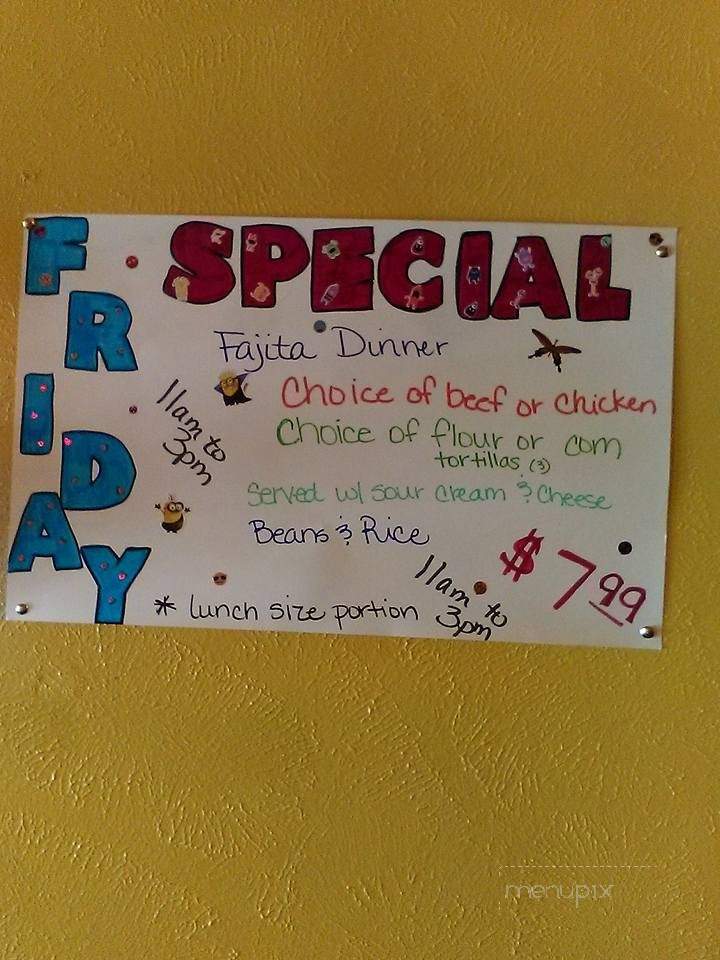 FRIDAY
SPECIAL
Fajita Dinner
11am to
3pm
Choice of beef or chicken
Choice of flour or corn
tortillas (3)
Served w/ sour cream & cheese
Beans & Rice
$7.99
11am to
3pm
* lunch size portion
menupix